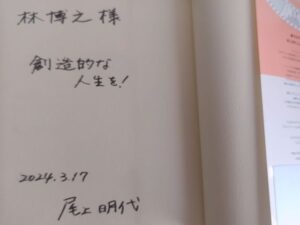 林博之様
創造的な
人生を!
2024.3.17
尾上明代